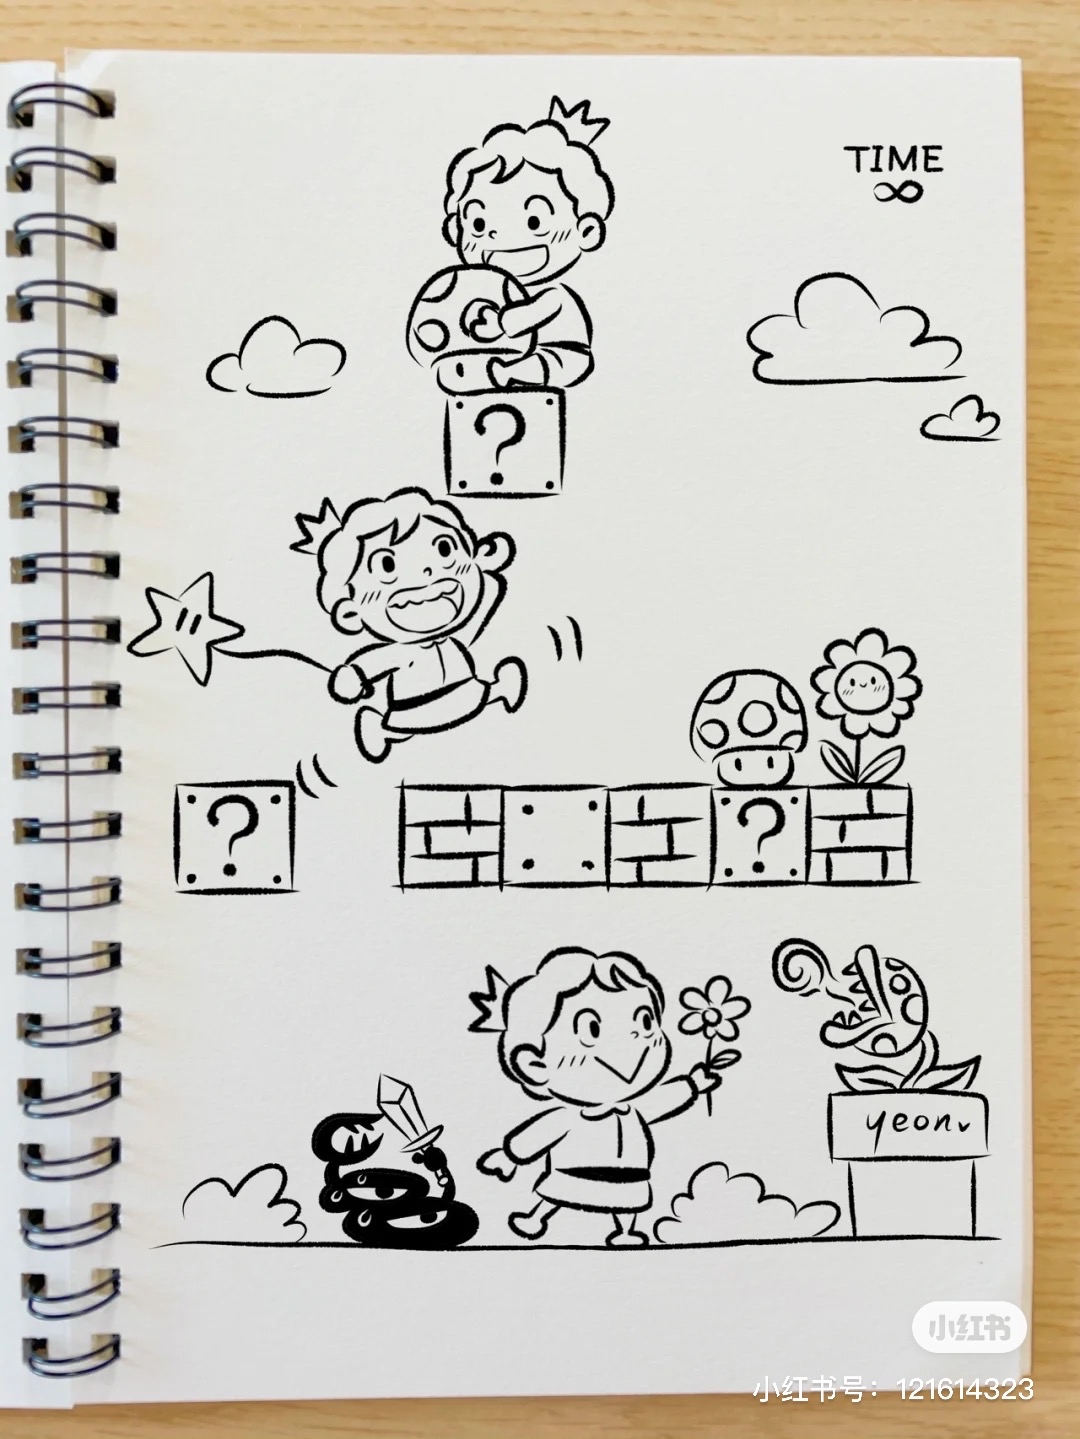 TIME
∞
?
?
?
yeon
小红书
小红书号：121614323